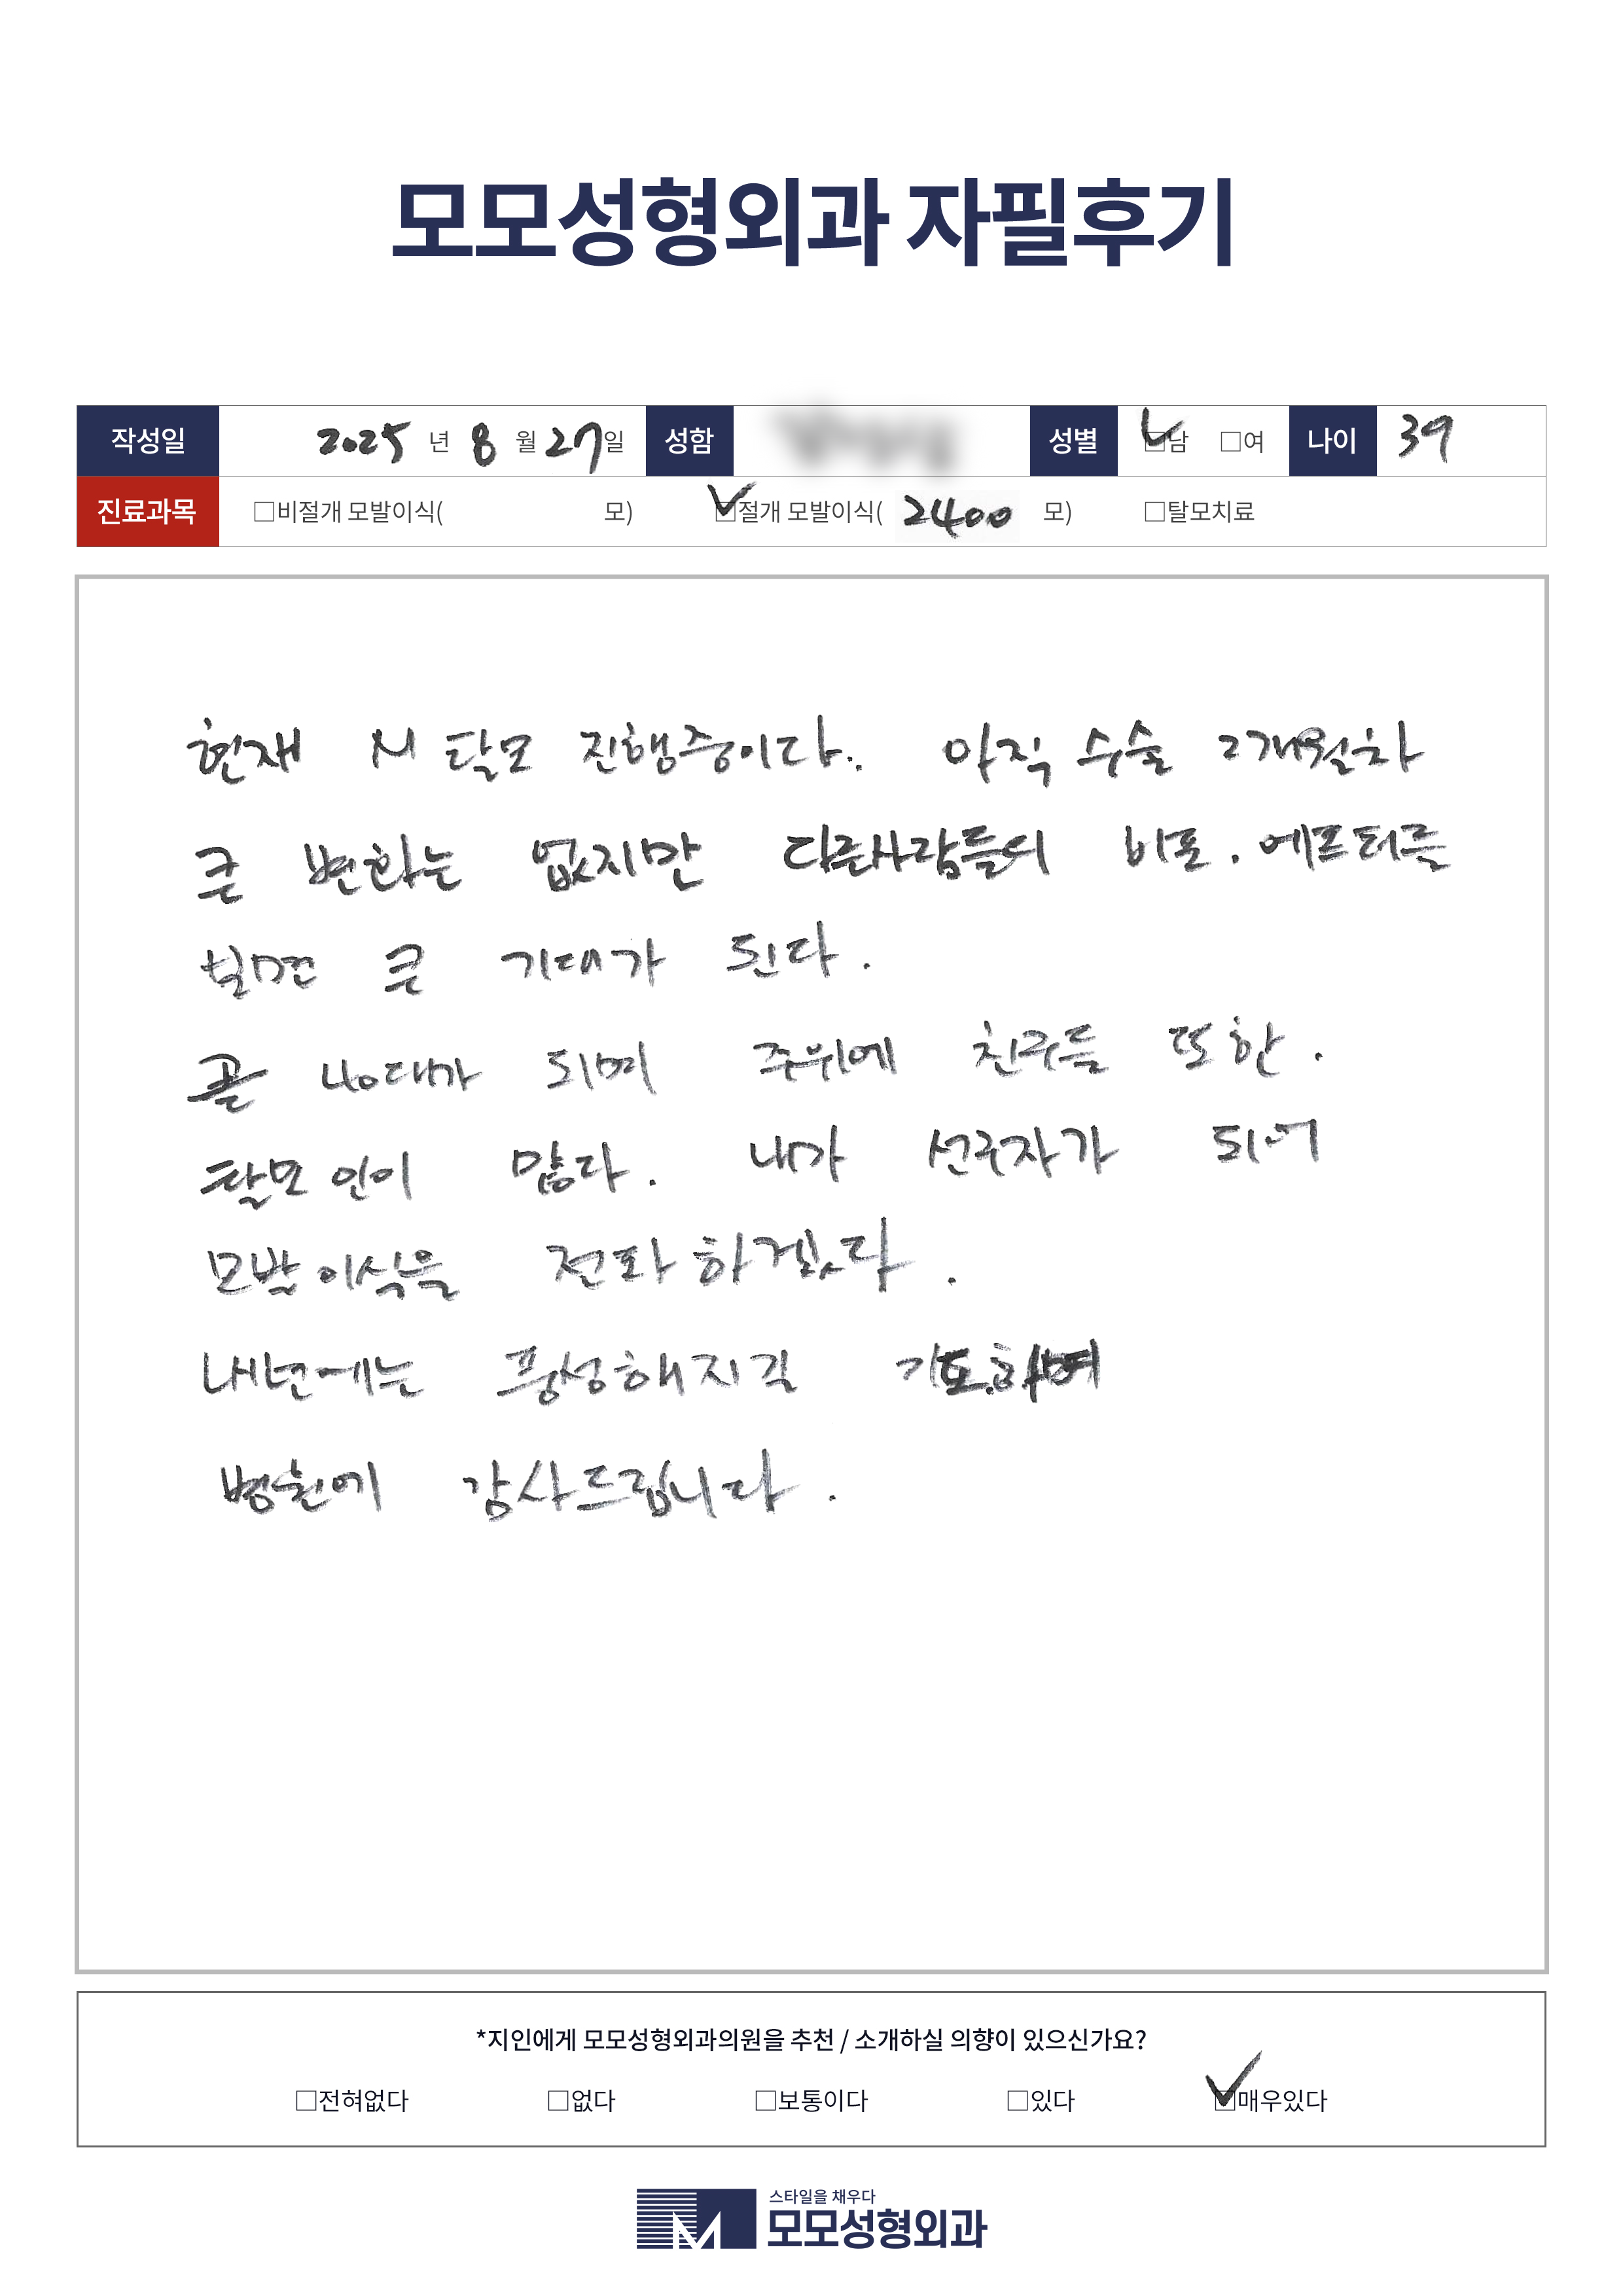 모모성형외과 자필후기
작성일 2025 년 8 월 27일 성함 성별 ☑남 □여 나이 39
진료과목 □비절개 모발이식( 모) ☑절개 모발이식( 2400 모) □탈모치료
현재 M 탈모 진행중이다.. 아직 수술 2개월차
큰 변화는 없지만 다른사람들의 비포. 에프터를
보면 큰 기대가 된다.
곧 40대가 되며 주위에 친구들 또한.
탈모인이 많다. 내가 선구자가 되어
모발이식을 전파하겠다.
내년에는 풍성해지길 기도하며
병원에 감사드립니다.
*지인에게 모모성형외과의원을 추천 / 소개하실 의향이 있으신가요?
□전혀없다 □없다 □보통이다 □있다 ☑매우있다
스타일을 채우다
모모성형외과